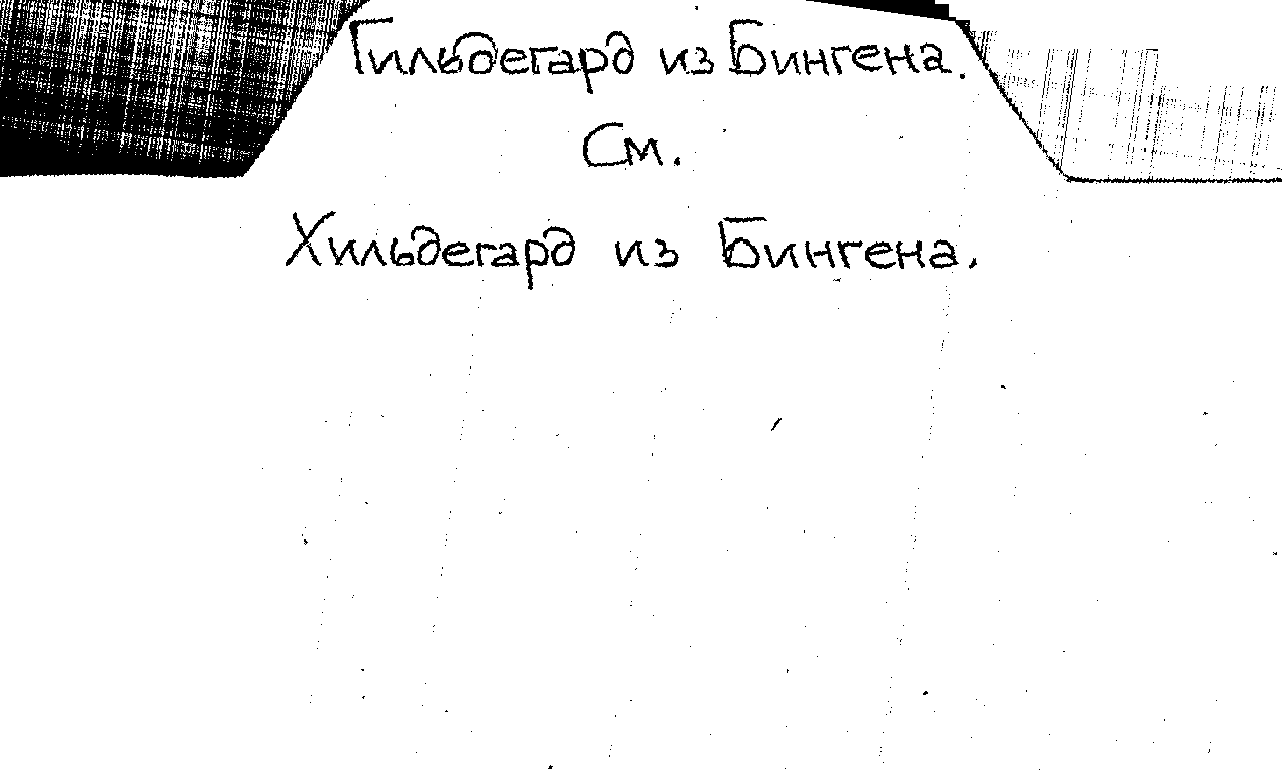 Гильдегард из Бингена.
См.
Хильдегард из Бингена.